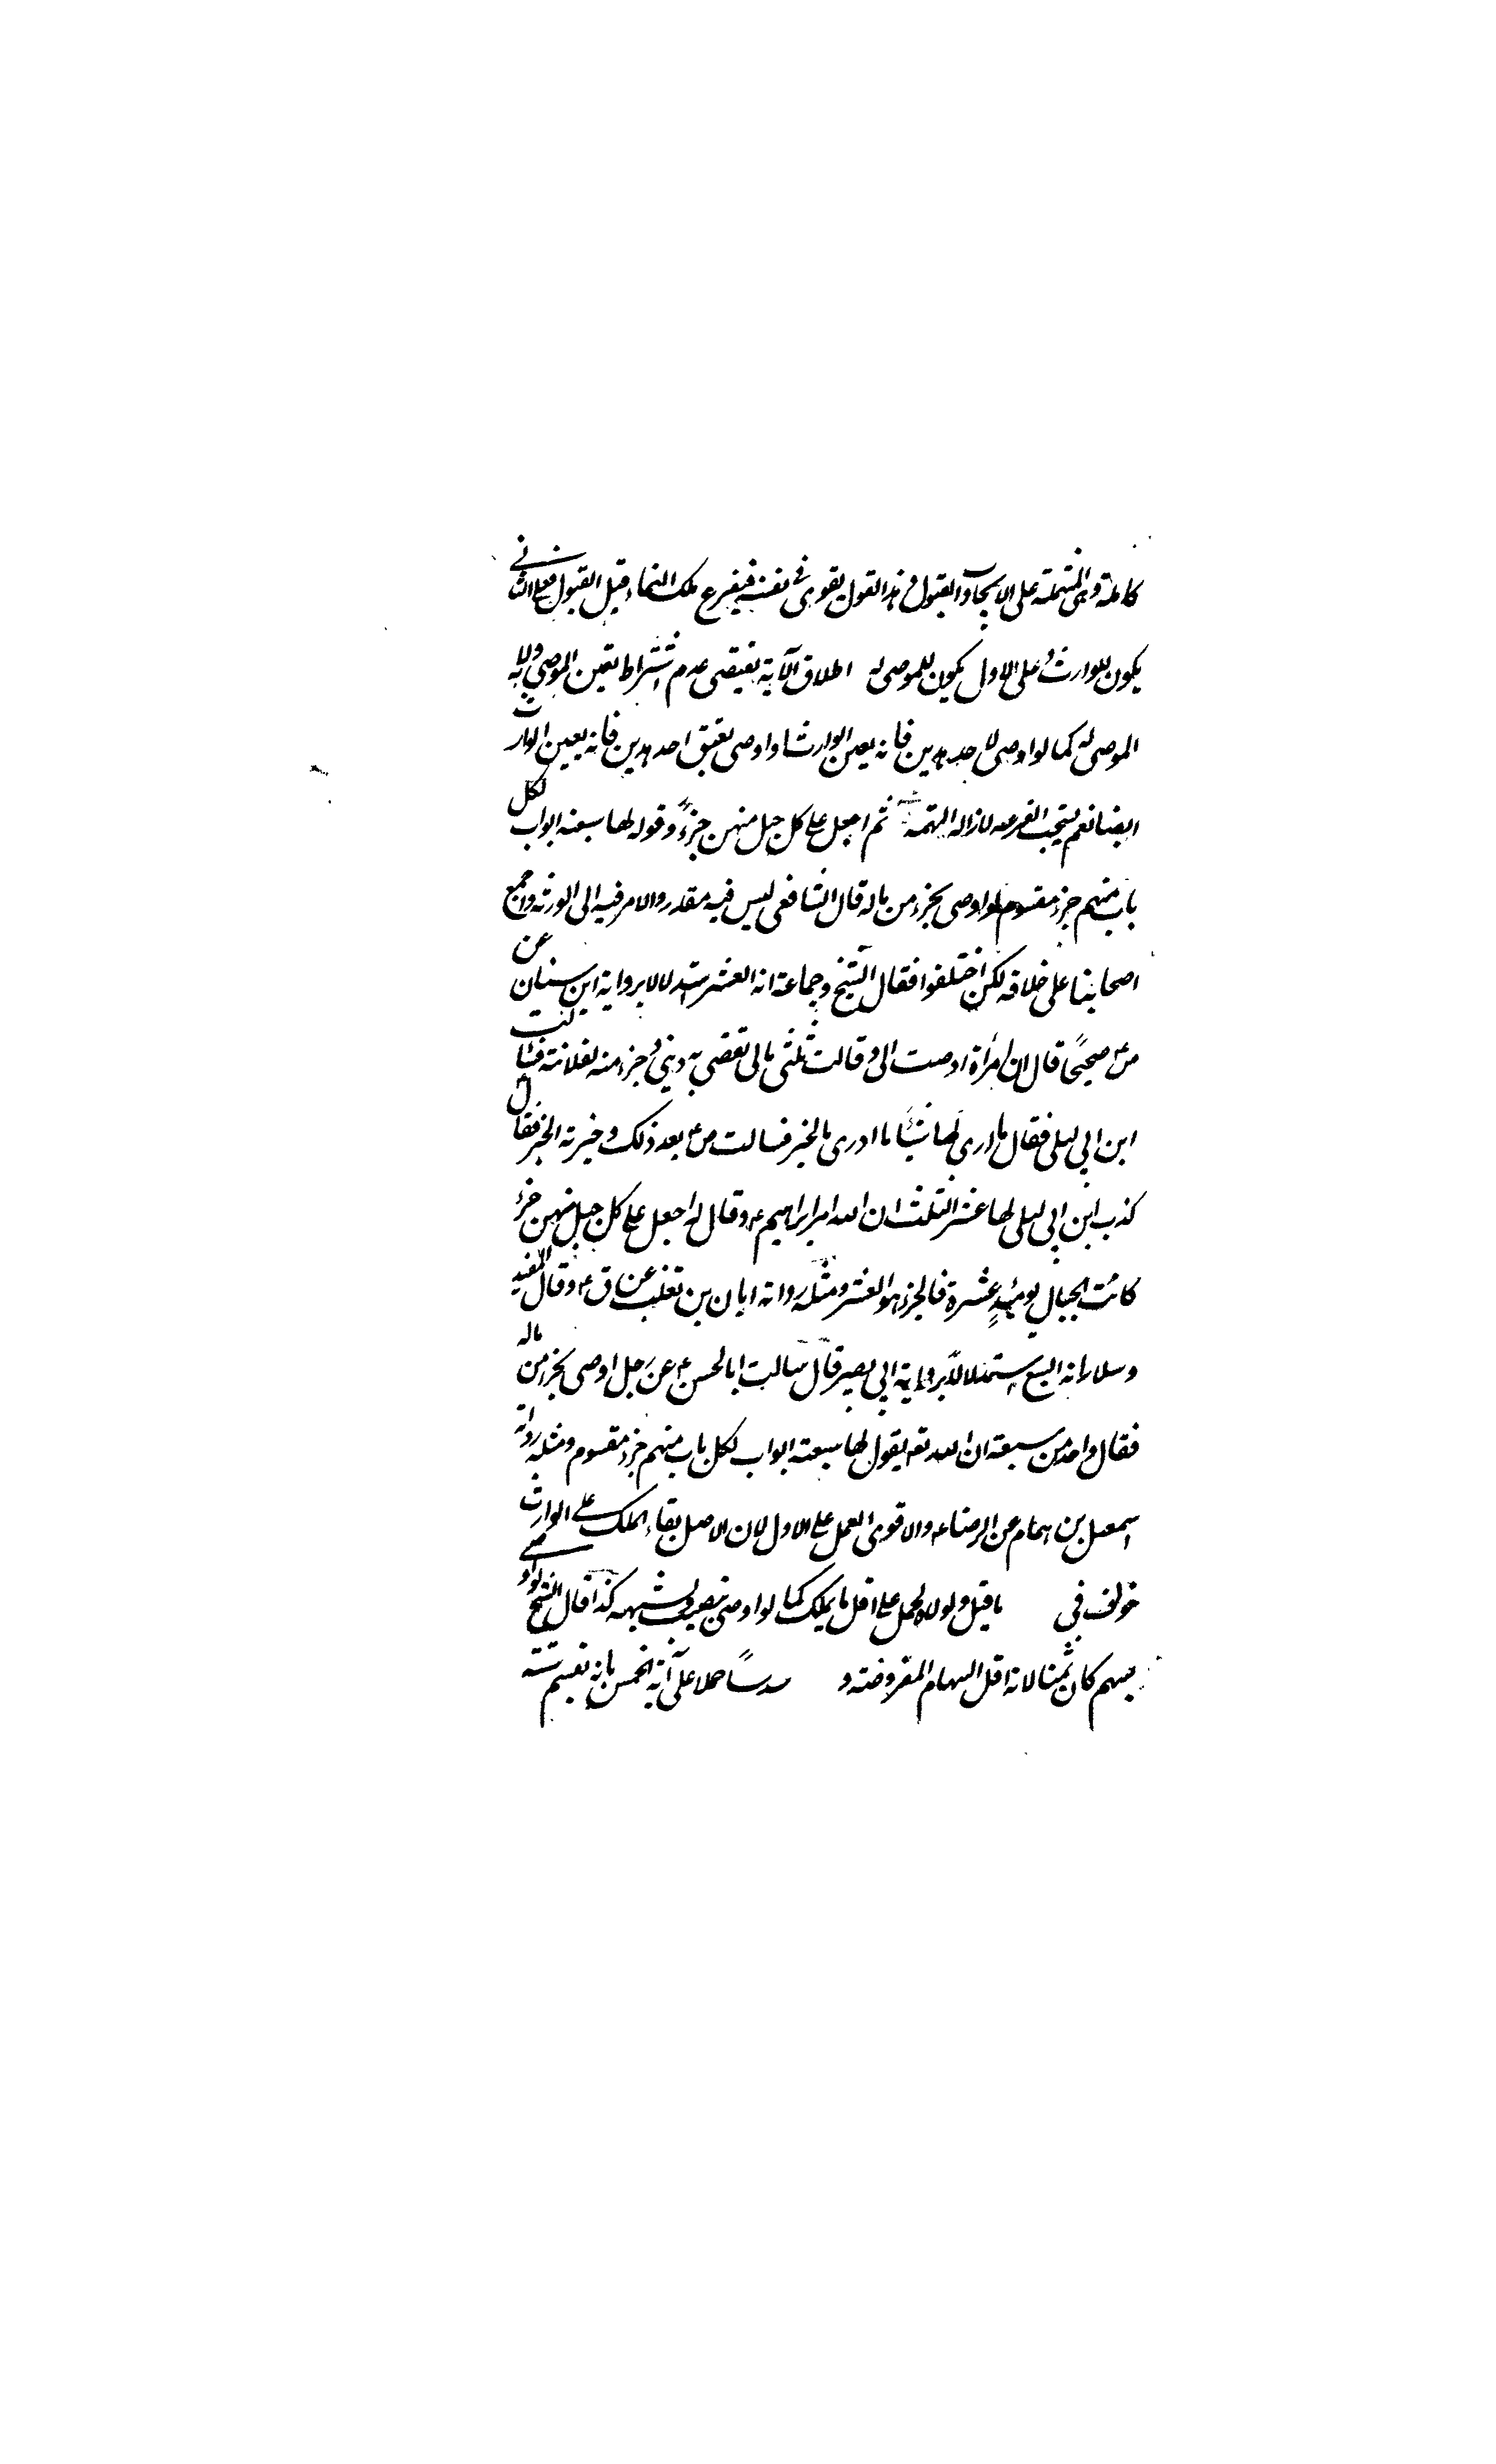 كاملة وهى المشتملة على الايجاب والقبول وهذا القول يقوى فى نفسى فيتفرع ملك النماء قبل القبول فعلى الثانى
يكون للوارث وعلى الاول يكون للموصى له اطلاق الآية تقتضى عدم اشتراط تعين الموصى به ولا
الموصى له كما لو اوصى لاحد هذين فانه يعين الوارث او اوصى بعتق احد هذين فانه يعين الوارث
ايضا نعم يستحب القرعه لازالة التهمة ثم اجعل على كل جبل منهن جزءً وقوله لها سبعة ابواب لكل
باب منهم جزء مقسوم لو اوصى بجزء من ماله قال الشافعى ليس فيه مقدر والامر فيه الى الورثة واجمع
اصحابنا على خلافه لكن اختلفوا فقال الشيخ وجماعة انه العشر استدلالا برواية ابن سنان عن
ص ع صحيحًا قال ان امرأة اوصت الى وقالت ثلثى مالى تقضى به دينى وجزء منه لفلانة فسألت
ابن ابى ليلى فقال ما ارى لها شيئًا ما ادرى ما الجزء فسالت ص ع بعد ذلك وخبرته الخبر فقال
كذب ابن ابى ليلى لها عشر الثلث ان الله امر ابراهيم ع وقال له اجعل على كل جبل منهن جزءً
كانت الجبال يومئذٍ عشرة فالجزء هو العشر ومثله رواته ابان بن تغلب عن ق ع وقال المفيد
وسلار انه السبع استدلالاً برواية ابى بصير قال سالت ابا الحسن ع عن رجل اوصى بجزء من ماله
فقال واحد من سبعة ان الله تعه يقول لها سبعة ابواب لكل باب منهم جزء مقسوم ومثله رواته
اسمعيل بن همام عن الرضا ع والاقوى العمل على الاول لان الاصل بقاء الملك على الوارث
خولف فى ما قيل ولولاه لحمل على اقل ما يملك كما لو اوصى بنصيب وشبهه كذا قال الشيخ لو اوصى
بسهم كان ثمنا لانه اقل السهام المفروضة و سدسًا حملا على آية الخمس بانه تقسيم ستة